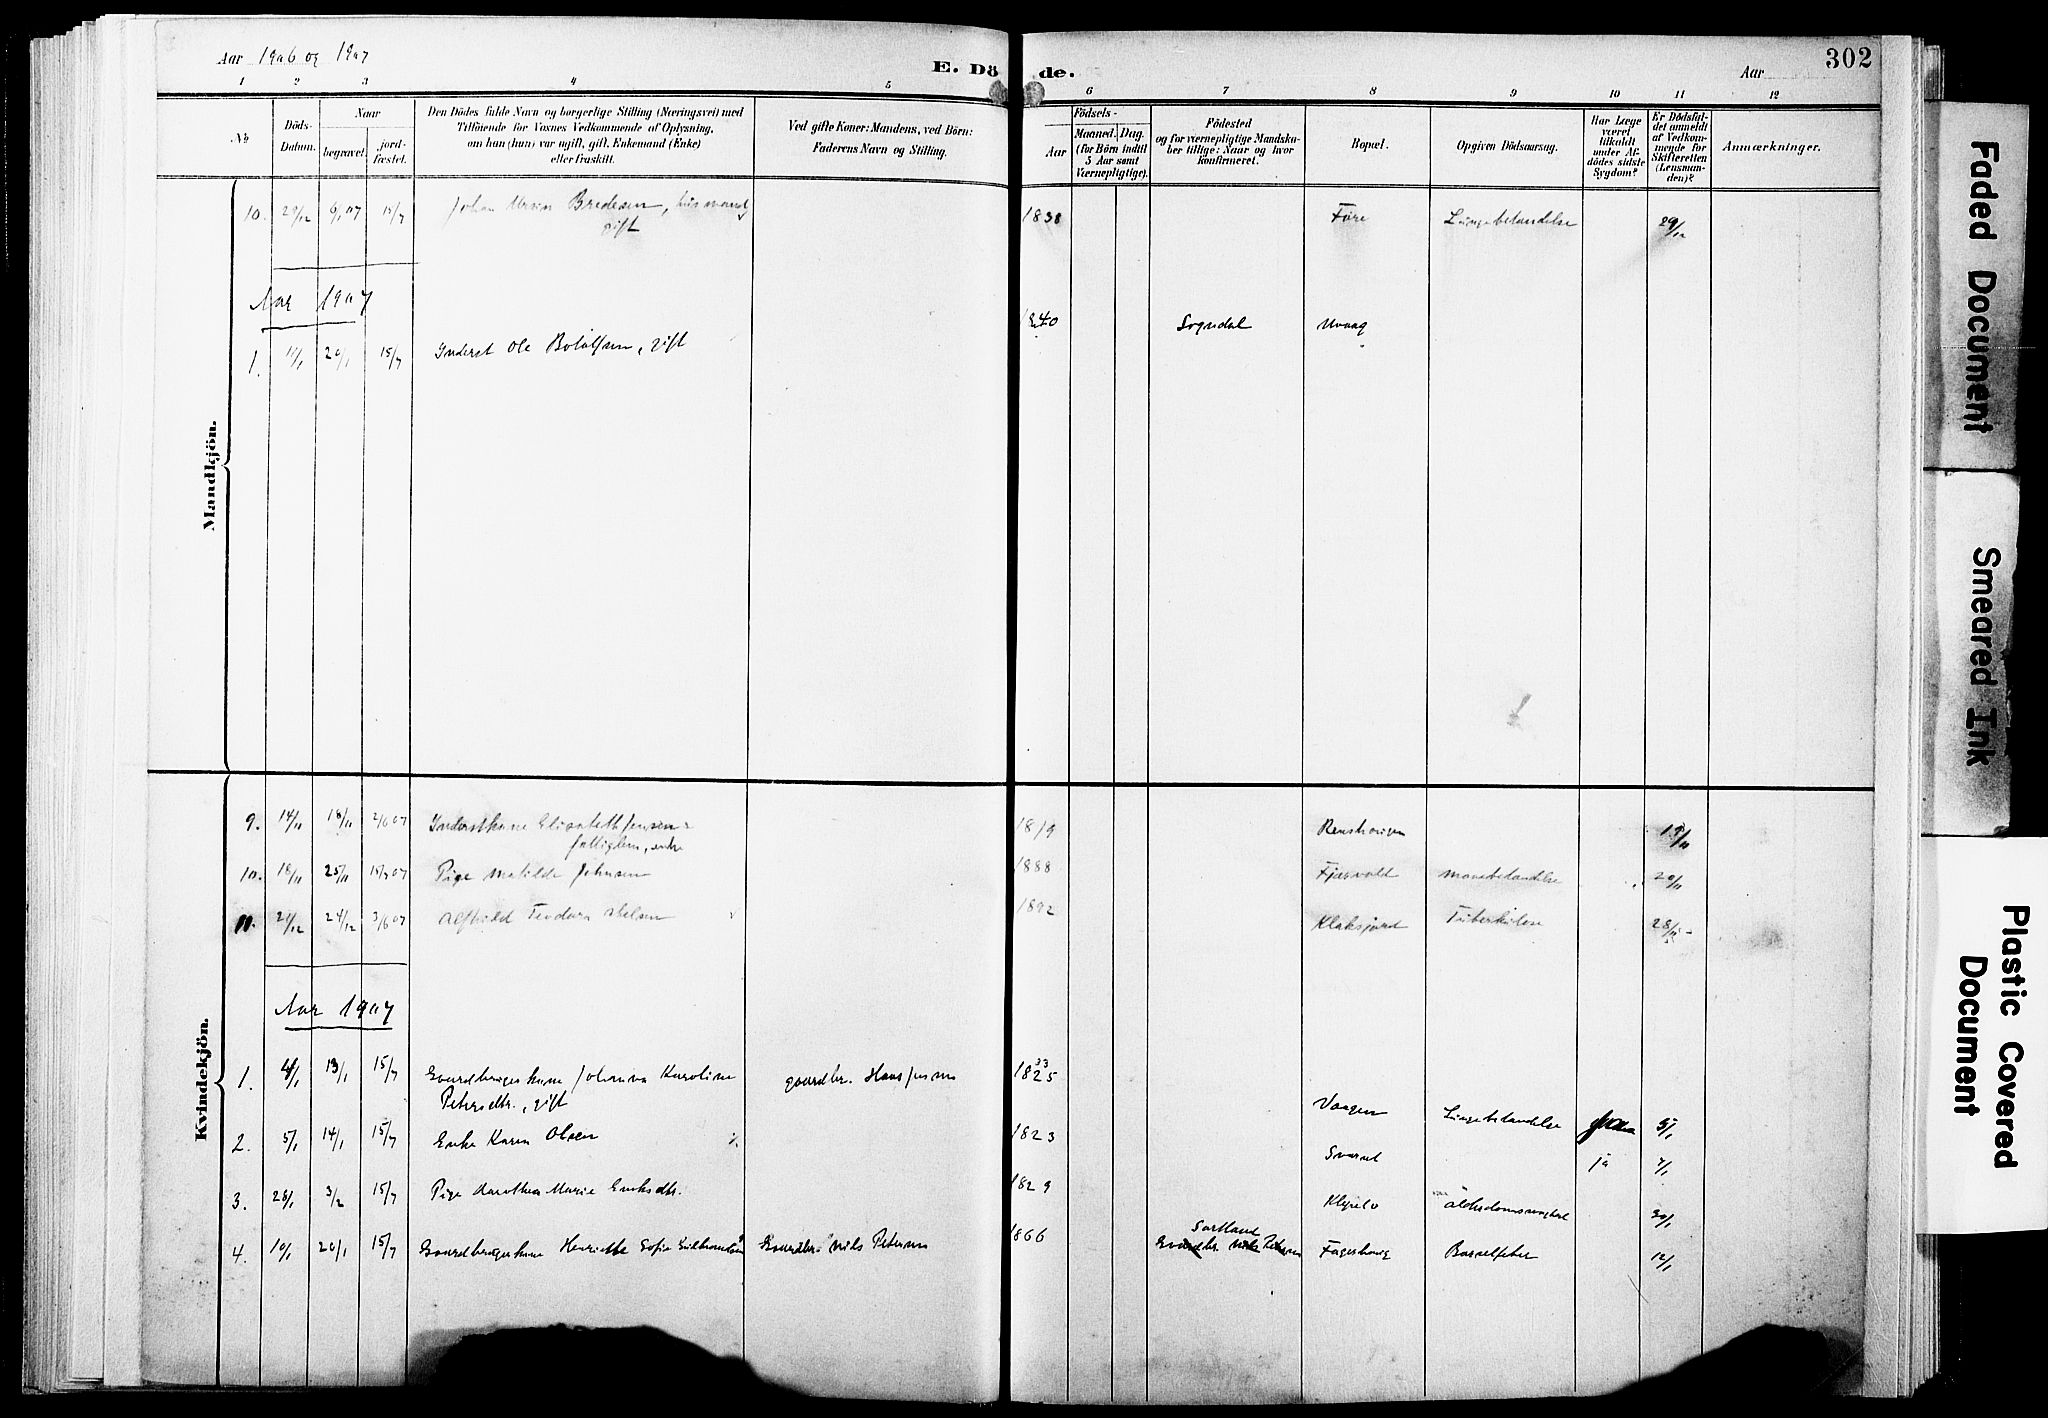 Aar 1906 og 1907
E. Döde.
Aar
302
1 2 3 4 5 6 7 8 9 10 11 12
No.
Döds-Datum.
Naar
begravet.
jord-fæstet.
Den Dödes fulde Navn og borgerlige Stilling (Næringsvei) med
Tilföiende for Voxnes Vedkommende af Oplysning,
om han (hun) var ugift, gift, Enkemand (Enke)
eller fraskilt.
Ved gifte Koner: Mandens, ved Börn:
Faderens Navn og Stilling.
Födsels-
Aar
Maaned. Dag.
(for Börn indtil
5 Aar samt
Værnepligtige).
Födested
og for værnepligtige Mandska-
ber tillige: Naar og hvor
konfirmeret.
Bopæl.
Opgiven Dödsaarsag.
Har Læge
været
tilkaldt
under Af-
dödes sidste
Sygdom?
Er Dödsfal-
det anmeldt
af Vedkom-
mende for
Skifteretten
(Lensman-
den)?
Anmærkninger.
Mandkjön.
10. 29/12 6/1 07 15/7 Johan Ursin Bredesen, husmand 1838 Føre Lungebetændelse 29/12
gift
Aar 1907
1. 20/1 15/7 Inderst Ole Botolfsen, gift 1840 Sogndal
Kvindekjön.
9. 14/11 18/11 2/6 07 Inderstkone Elisabeth Jensen 1819 19/11
fattiglem, enke
10. 18/11 25/11 15/7 07 Pige Matilde Johnsen 1888 Fjærvold 20/11
11. 24/12 3/6 07 Teodora 1892 Klaksjord Tuberkulose 28/12
Aar 1907
1. 4/1 13/1 15/7 Gaardbrugerkone Johanna Karoline gaardbr. Hans Jensen 1825 33
Petersdtr., gift Vaagen Lungebetændelse 5/1
2. 5/1 14/1 15/7 Enke Karen Olsen 1823
ja 7/1
3. 28/1 3/2 15/7 Pige Dorothea Marie Eriksdtr. 1829 30/1
4. 10/1 20/1 15/7 Gaardbrugerkone Henriette Sofie Gaardbr. Nils Petersen 1866 Sortland
Gaardbr. Nils Petersen Barselfeber 12/1
Faded Document
Smeared Ink
Plastic Covered
Document